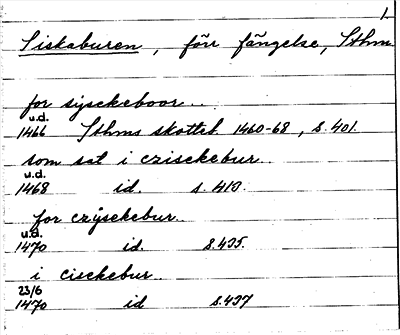 1.
Siskaburen, förr fängelse, Sthm
for sysekeboor..
u.d.
1466 Sthms skotteb. 1460-68, s. 401.
som sat i czisekebur..
u.d.
1468 id. s. 410.
for czÿsekebur..
u.d.
1470 id. s. 435.
i cisekebur..
23/6
1470 id s. 437